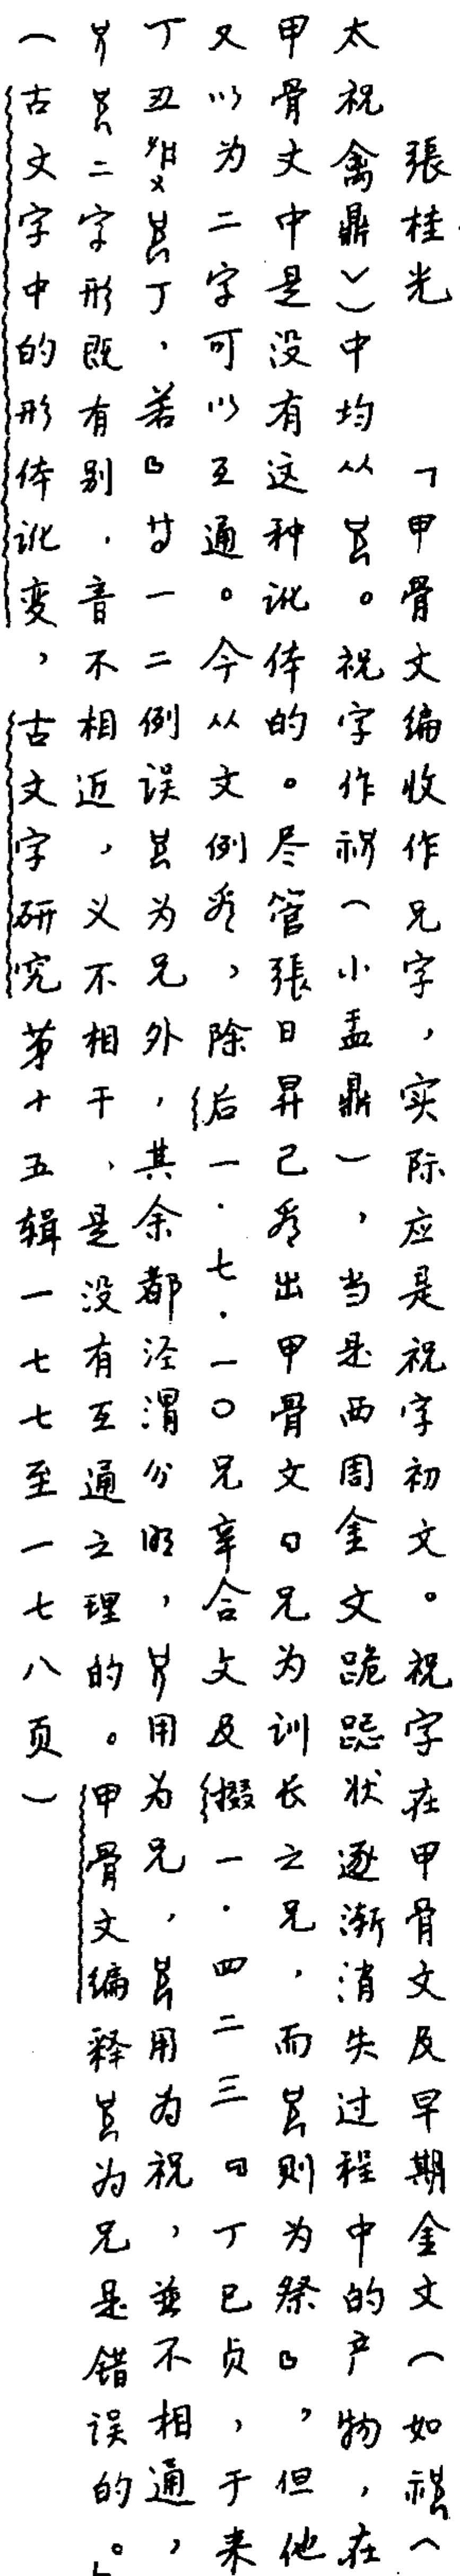 張桂光 「甲骨文編收作兄字，实际应是祝字初文。祝字在甲骨文及早期金文（如（
太祝禽鼎））中均从。祝字作祝（小盂鼎），当是西周金文跪跽状逐渐消失过程中的产物，在
甲骨文中是没有这种讹体的。尽管張日昇已看出甲骨文『兄为训长之兄，而则为祭』，但他
又以为二字可以互通。今从文例看，除后一·七·一〇兄辛合文及掇一·四二三『丁巳贞，于来
丁丑丁，若』等一二例误为兄外，其余都泾渭分明，用为兄，用为祝，並不相通，
二字形既有别，音不相近，义不相干，是没有互通之理的。甲骨文編释为兄是错误的。」
（古文字中的形体讹变，古文字研究第十五辑一七七至一七八页）